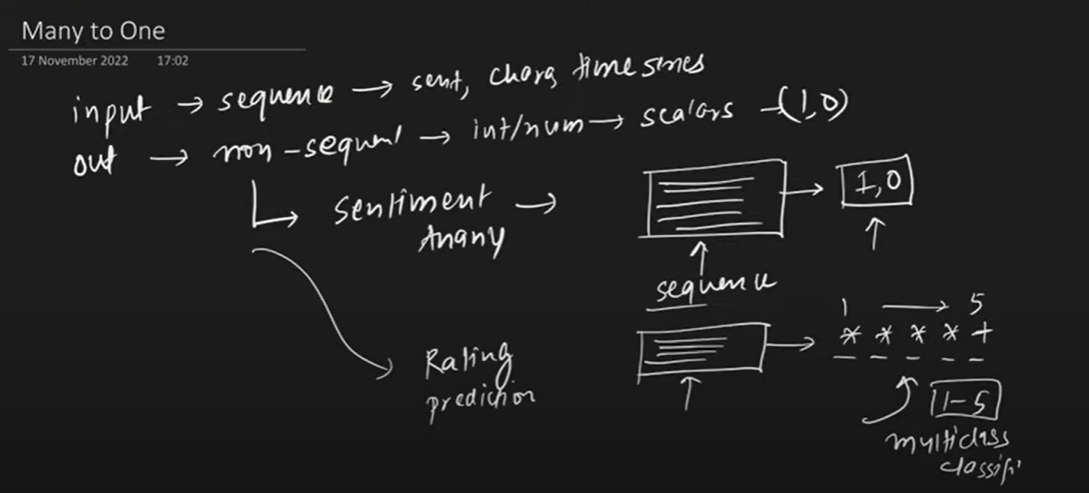 Many to One
17 November 2022 17:02
input → sequence → sent, charq time series
out → non-sequent → int/num → scalars -(1,0)
Sentiment → 1,0
Anany
sequence
1 → 5
* * * * +
Rating
prediction
1-5
multiclass
classifi